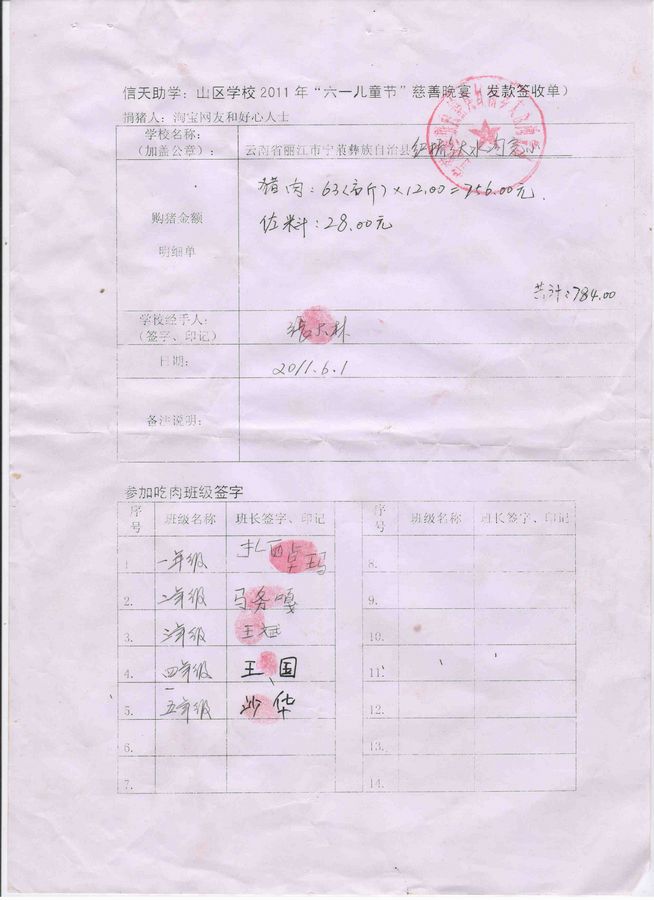 信天助学：山区学校2011年“六一儿童节”慈善晚宴（发款签收单）
捐猪人：淘宝网友和好心人士
学校名称：
（加盖公章）：
云南省丽江市宁蒗彝族自治县
购猪金额
明细单
猪肉：63(市斤)×12.00=756.00元.
佐料：28.00元
共计：784.00
学校经手人：
（签字、印记）
日期：
2011.6.1
备注说明：
参加吃肉班级签字
序号 班级名称 班长签字、印记 序号 班级名称 班长签字、印记
1 一年级 扎西卓玛 8.
2. 二年级 马务嘎 9.
3. 三年级 王斌 10.
4. 四年级 王国 11.
5. 五年级 沙华 12.
6. 13.
7. 14.